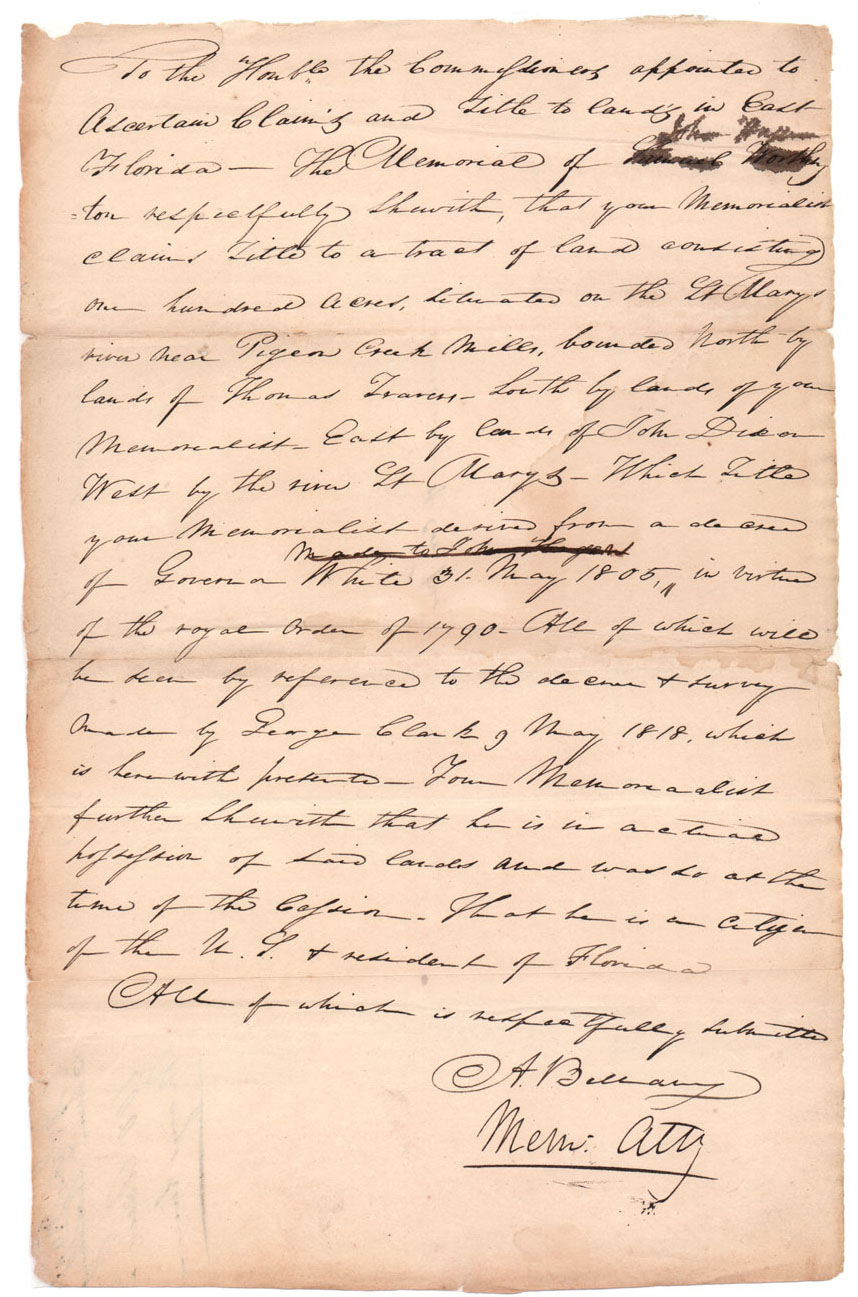 To the Honble the Commissioners appointed to
Ascertain Claims and Title to lands in East
John
Florida — The Memorial of Samuel Worthing
=ton respectfully Sheweth, that your Memorialist
claims Title to a tract of land consisting
one hundred Acres, situated on the St Marys
river near Pigeon Creek Mills, bounded North by
lands of Thomas Travers - South by lands of your
Memorialist - East by lands of John Dixon
West by the river St Marys - Which Title
your Memorialist derived from a decree
Made to John
of Governor White 31. May 1805, in virtue
of the royal Order of 1790 - All of which will
be seen by reference to the decree + survey
made by George Clark 9 May 1818. which
is herewith presente — Your Memorialist
further Sheweth that he is in actual
possession of said lands and was so at the
time of the Cession - That he is a Citizen
of the U. S. + resident of Florida
All of which is respectfully submitted
A. Bellamy
Mem. Atty